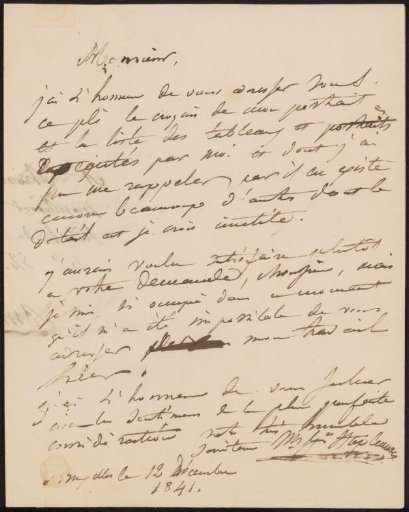 Monsieur,
j'ai l'honneur de vous adresser sous
ce pli le croquis de mon portrait
et la liste des tableaux et portraits
exécutés par moi et dont j'ai
pu me rappeler, car il en existe
encore beaucoup d'autres dont le
détail est je crois inutile.
j'aurais voulu satisfaire plutôt
a votre demande, Monsieur, mais
je suis si occupé dans ce moment
qu'il m'a été impossible de vous
adresser mon travail
hier.
j'ai l'honneur de vous saluer
avec les sentimens de la plus parfaite
considération votre très humble
serviteur
Bruxelles le 12 Décembre
1841.